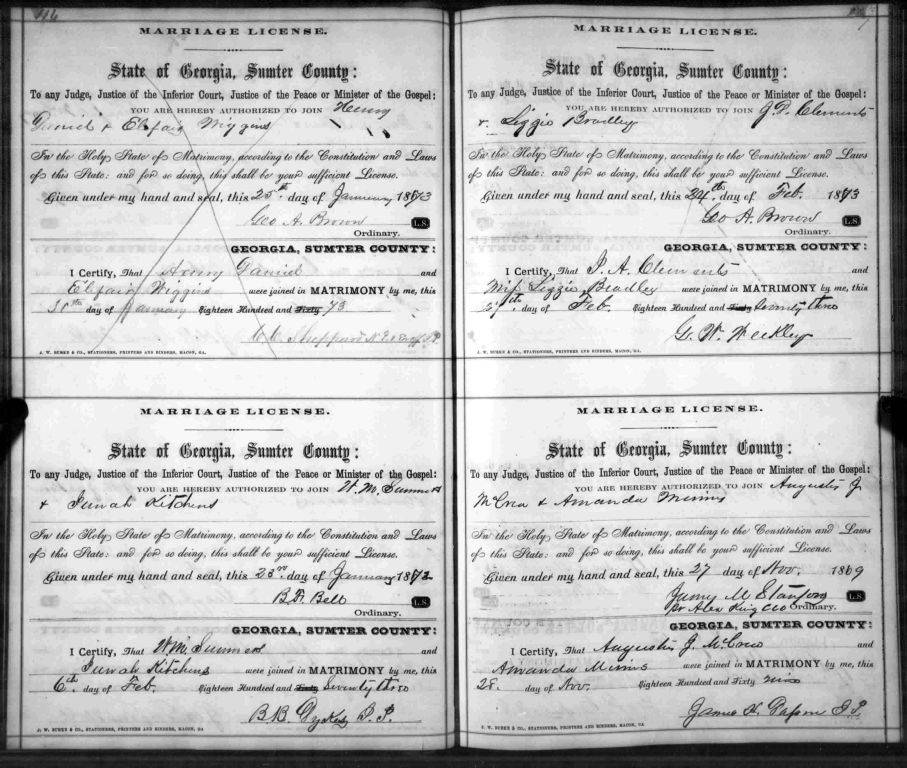 46
MARRIAGE LICENSE.
State of Georgia, Sumter County:
To any Judge, Justice of the Inferior Court, Justice of the Peace or Minister of the Gospel:
YOU ARE HEREBY AUTHORIZED TO JOIN Henry
Daniel & Elefair Wiggins
In the Holy State of Matrimony, according to the Constitution and Laws
of this State: and for so doing, this shall be your sufficient License.
Given under my hand and seal, this 25th day of January 1873
Geo A. Brown L.S.
Ordinary.
GEORGIA, SUMTER COUNTY:
I Certify, That Daniel and
Elefair Wiggins were joined in MATRIMONY by me, this
day of January Eighteen Hundred and Sixty 73
Sheppard
J. W. BURKE & CO., STATIONERS, PRINTERS AND BINDERS, MACON, GA.
MARRIAGE LICENSE.
State of Georgia, Sumter County:
To any Judge, Justice of the Inferior Court, Justice of the Peace or Minister of the Gospel:
YOU ARE HEREBY AUTHORIZED TO JOIN W. M. Summers
& Kitchens
In the Holy State of Matrimony, according to the Constitution and Laws
of this State: and for so doing, this shall be your sufficient License.
Given under my hand and seal, this 23rd day of January 1873
B. F. Bell L.S.
Ordinary.
GEORGIA, SUMTER COUNTY:
I Certify, That W M Summers and
Kitchens were joined in MATRIMONY by me, this
6th day of Feb. Eighteen Hundred and Sixty Seventy three
B. B. Dykes J. P.
J. W. BURKE & CO., STATIONERS, PRINTERS AND BINDERS, MACON, GA
MARRIAGE LICENSE.
State of Georgia, Sumter County:
To any Judge, Justice of the Inferior Court, Justice of the Peace or Minister of the Gospel:
YOU ARE HEREBY AUTHORIZED TO JOIN J. P. Clements
& Lizzie Bradley
In the Holy State of Matrimony, according to the Constitution and Laws
of this State: and for so doing, this shall be your sufficient License.
Given under my hand and seal, this 24th day of Feb. 1873
Geo A. Brown L.S.
Ordinary.
GEORGIA, SUMTER COUNTY:
I Certify, That Clements and
Miss Lizzie Bradley were joined in MATRIMONY by me, this
day of Feb. Eighteen Hundred and Sixty Seventy three
G. W. Weekley
J. W. BURKE & CO., STATIONERS, PRINTERS AND BINDERS, MACON, GA.
MARRIAGE LICENSE.
State of Georgia, Sumter County:
To any Judge, Justice of the Inferior Court, Justice of the Peace or Minister of the Gospel:
YOU ARE HEREBY AUTHORIZED TO JOIN Augustis J
McCrea & Amanda Mimms
In the Holy State of Matrimony, according to the Constitution and Laws
of this State: and for so doing, this shall be your sufficient License.
Given under my hand and seal, this 27 day of Nov. 1869
M Stanford L.S.
pr Alex King Ordinary.
GEORGIA, SUMTER COUNTY:
I Certify, That Augustis J. McCrea and
Amanda Mimms were joined in MATRIMONY by me, this
28. day of Nov. Eighteen Hundred and Sixty nine
James J.P.
J. W. BURKE & CO., STATIONERS, PRINTERS AND BINDERS, MACON, GA.